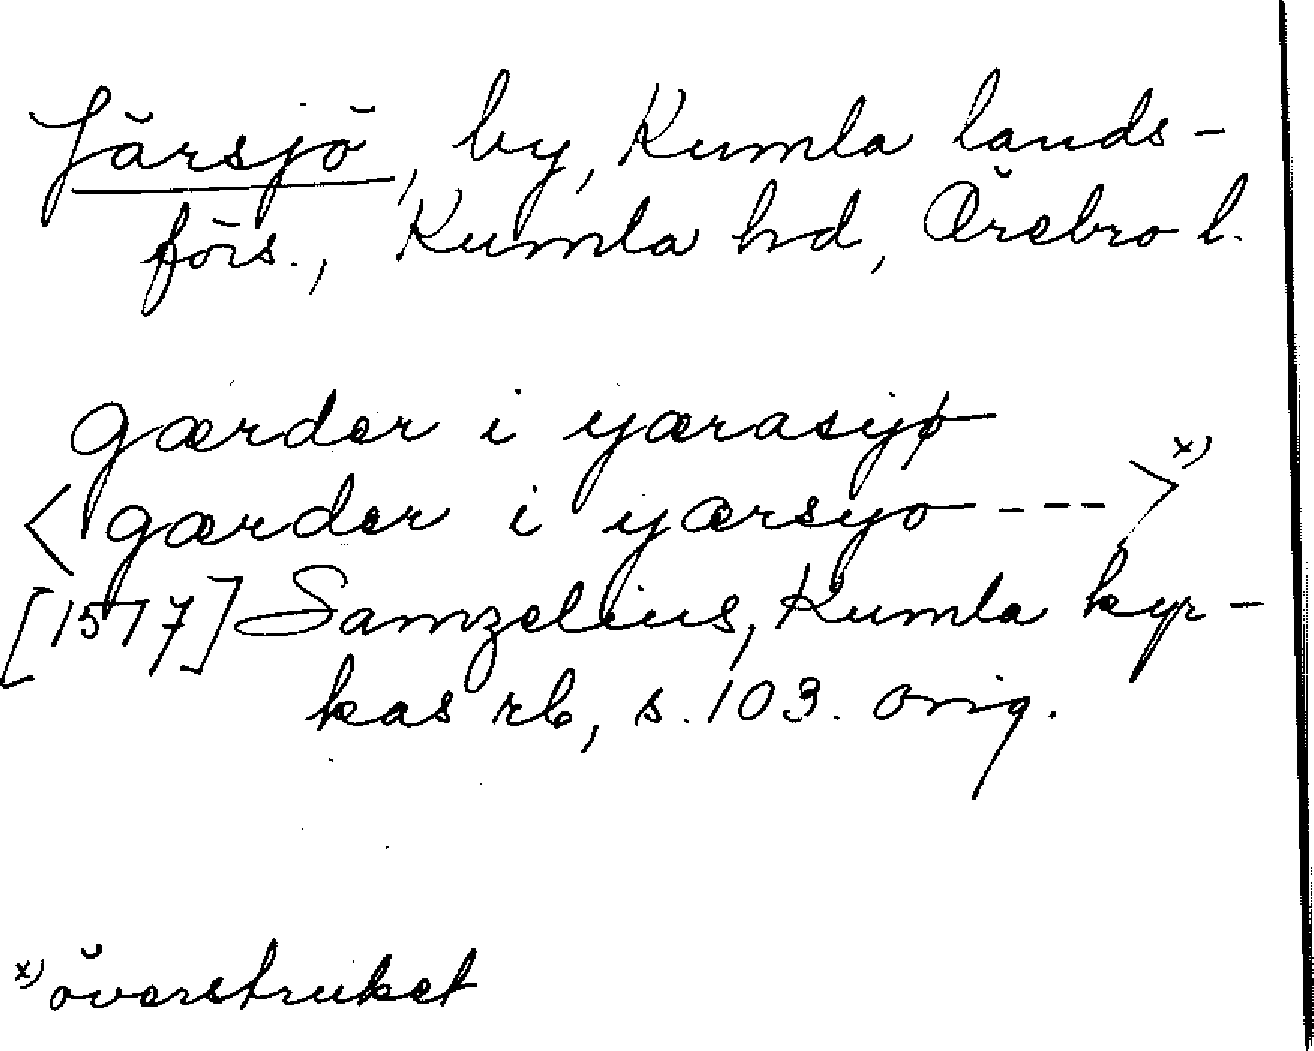 Järsjö, by, Kumla lands-
förs., Kumla hd, Örebro l.
gærder i yærasyø
<gærder i yærsyo --->x)
[1517] Samzelius, Kumla kyr-
kas rb, s. 103. orig.
x) överstruket